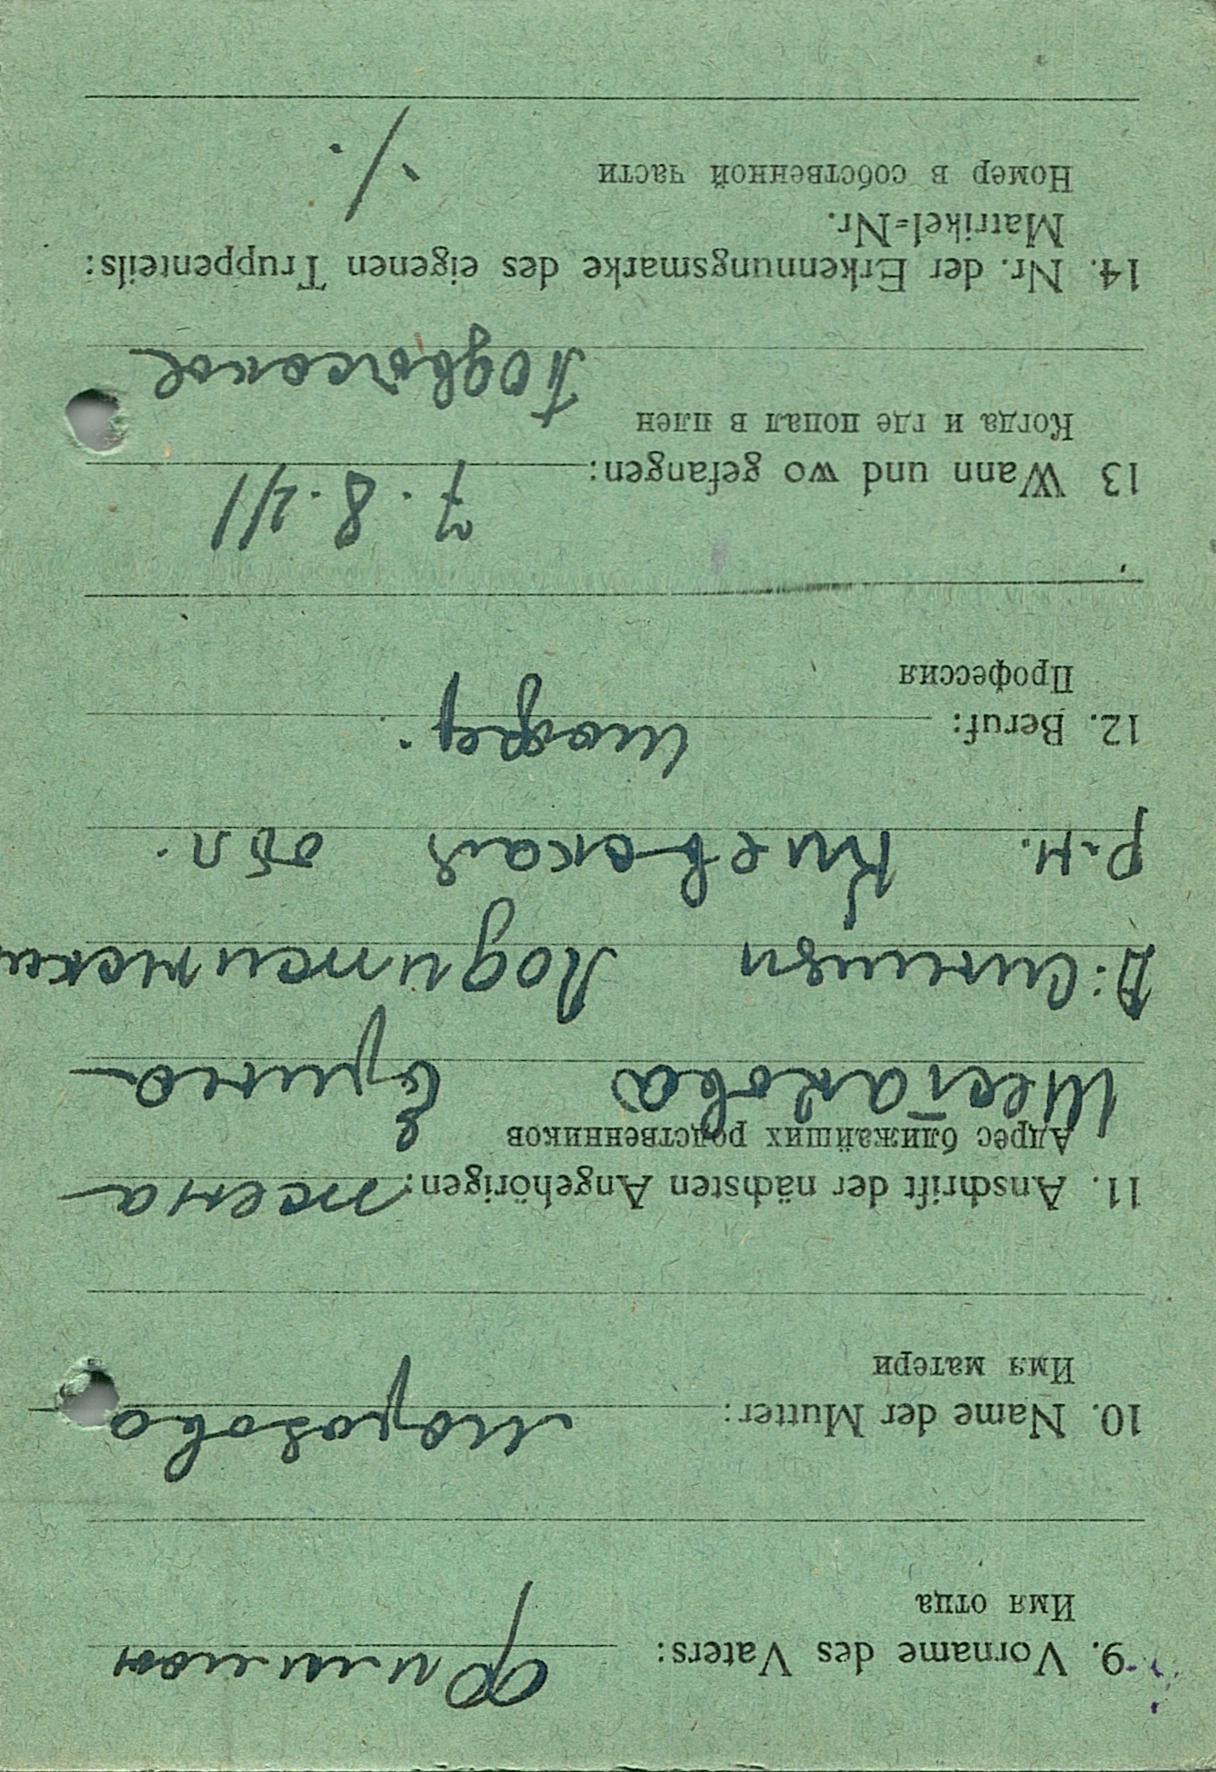 9. Vorname des Vaters: Филимон
Имя отца
10. Name der Mutter: Морозова
Имя матери
11. Anschrift der nächsten Angehörigen: жена
Адрес ближайших родственников
Шестакова
р-н. Киевская обл.
12. Beruf: шофер.
Профессия
13 Wann und wo gefangen: 7.8.41
Когда и где попал в плен
Подвысокое
14. Nr. der Erkennungsmarke des eigenen Truppenteils:
Matrikel=Nr.
Номер в собственной части ·/.